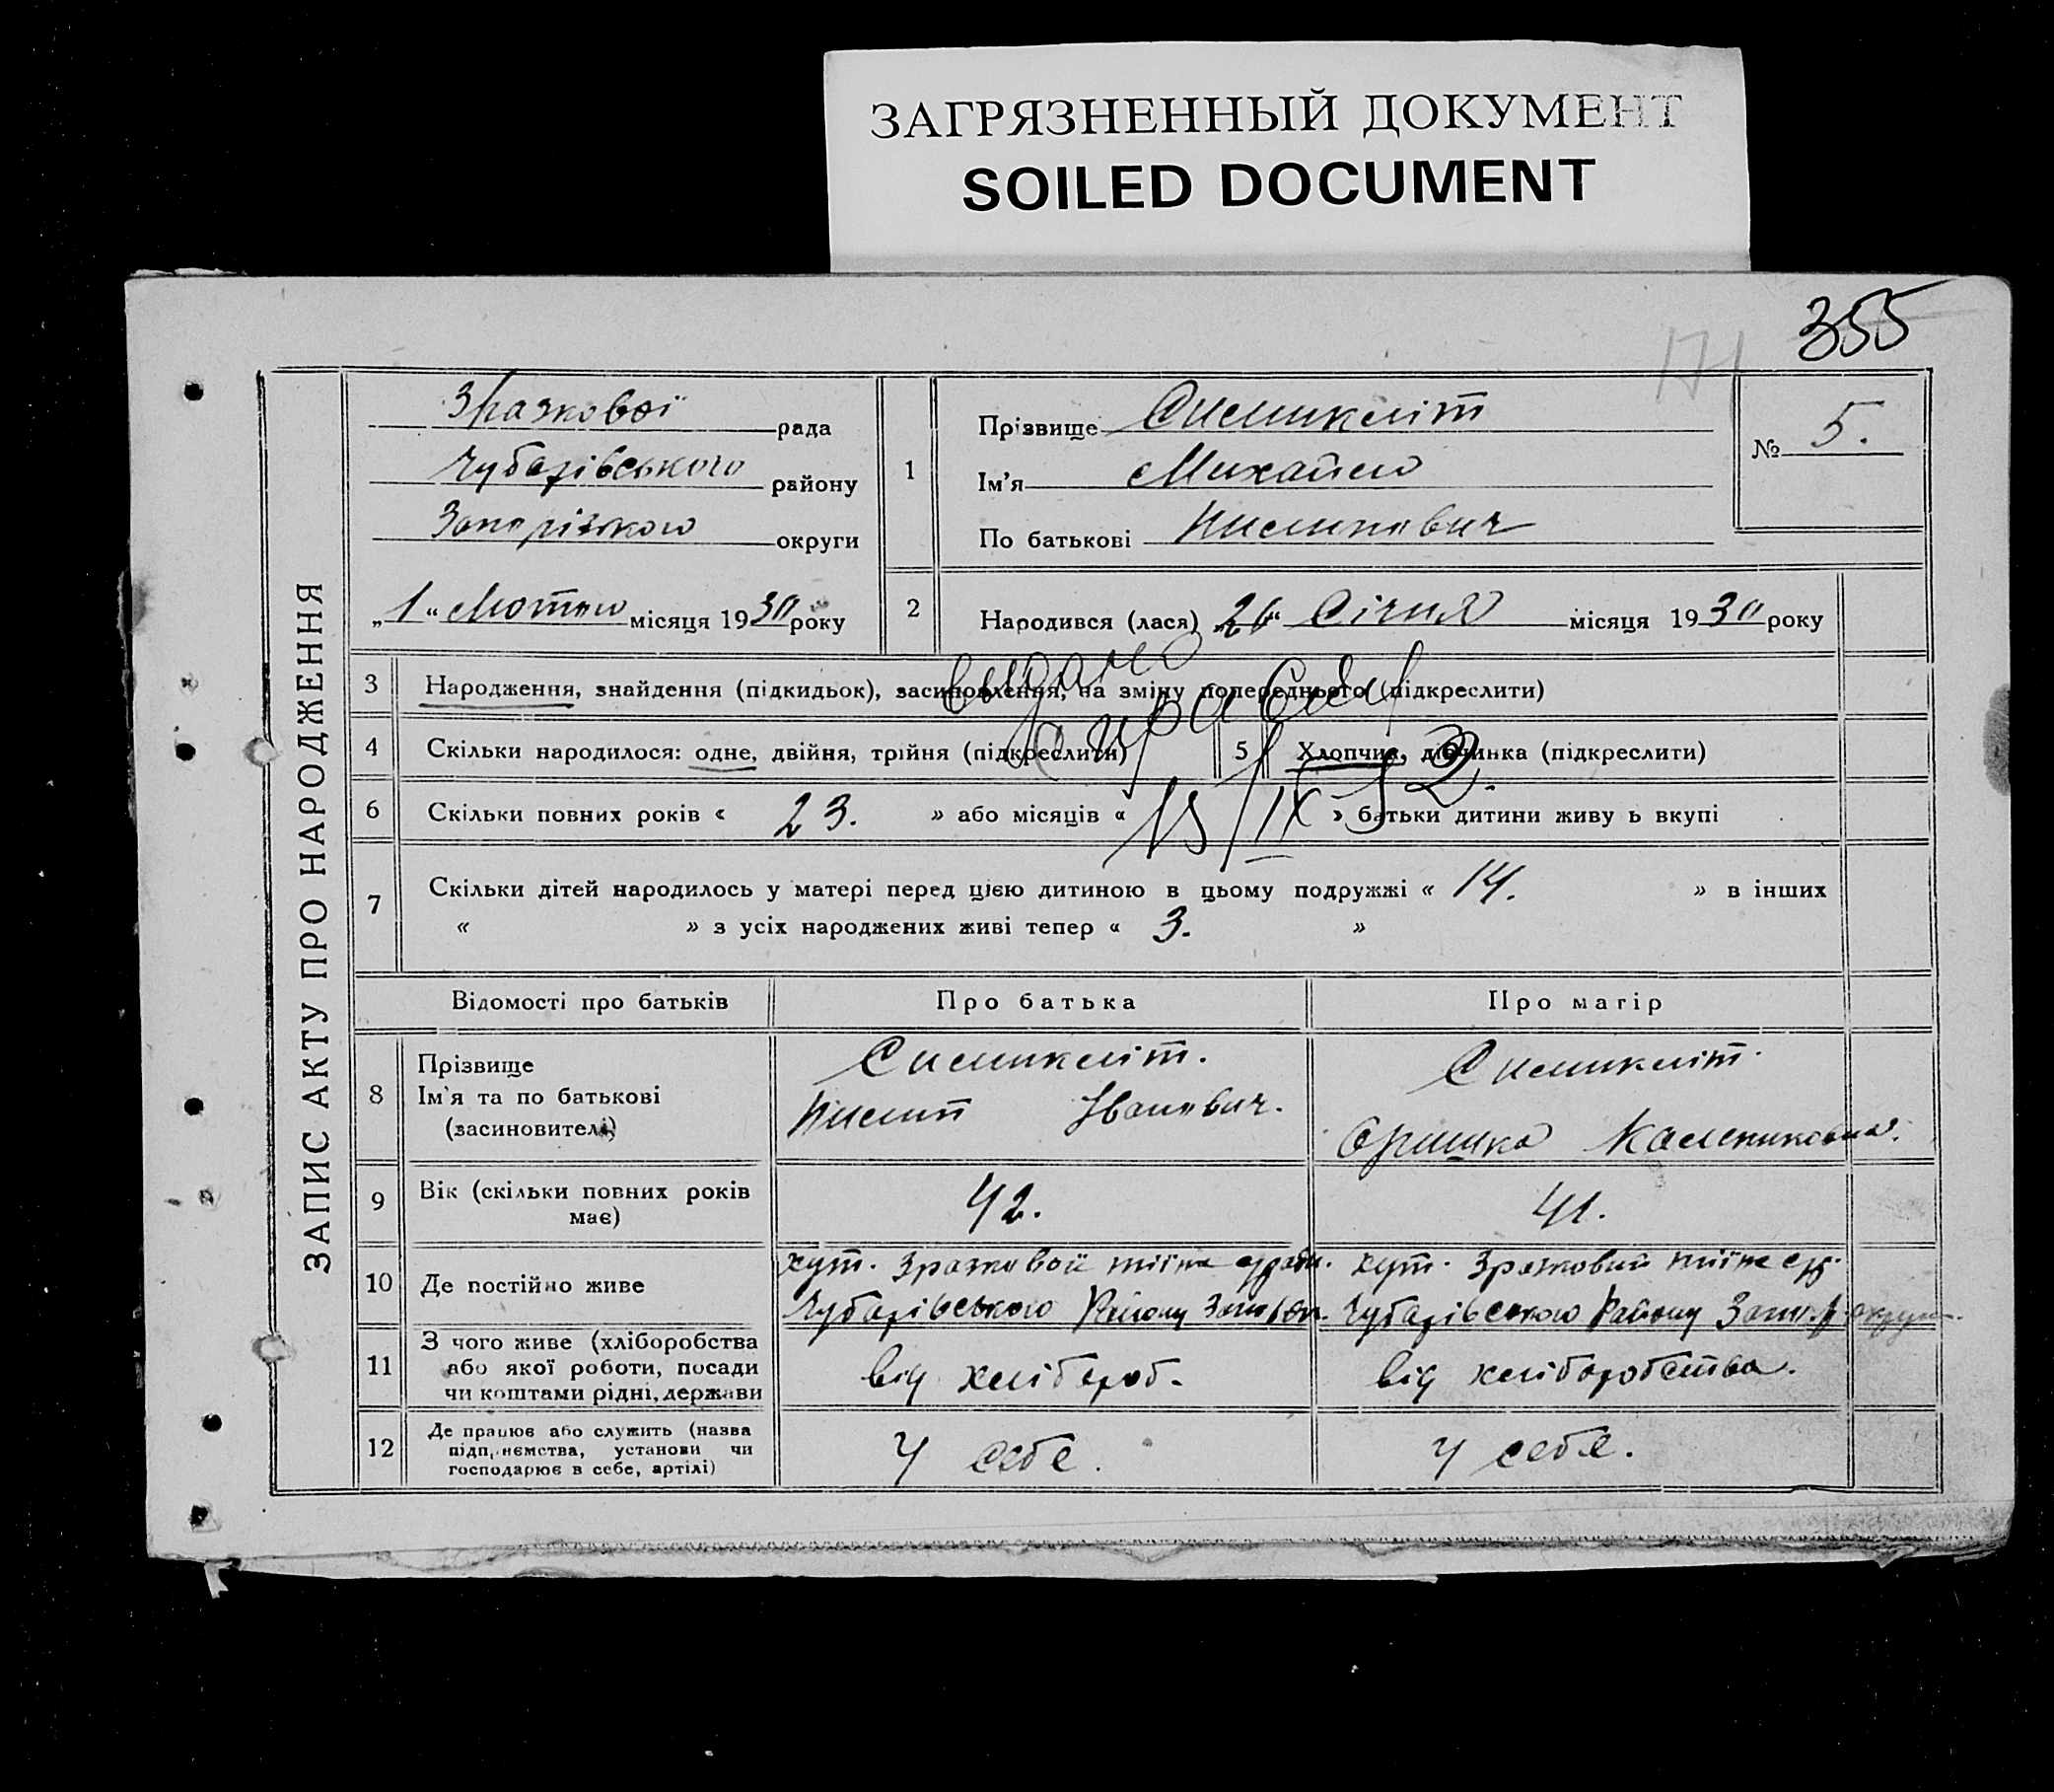 ЗАГРЯЗНЕННЫЙ ДОКУМЕНТ
SOILED DOCUMENT
355
171
ЗАПИС АКТУ ПРО НАРОДЖЕННЯ
Зразкової рада
Чубарівського району
Запорізького округи
„1“ Лютого місяця 1930 року
1
Прізвище
Ім'я Михайло
По батькові Пилипович
№ 5.
2 Народився (лася) „26“ Січня місяця 1930 року
3 Народження, знайдення (підкидьок), засиновлення, на зміну попереднього (підкреслити)
4 Скільки народилося: одне, двійня, трійня (підкреслити) 5 Хлопчик, дівчинка (підкреслити)
выдано
справка
15/IX 52.
6 Скільки повних років « 23. » або місяців « » батьки дитини живу ь вкупі
7 Скільки дітей народилось у матері перед цією дитиною в цьому подружжі « 14. » в інших
« » з усіх народжених живі тепер « 3. »
Відомості про батьків Про батька Про матір
8 Прізвище
Ім'я та по батькові
(засиновителі)
Пилип Іванович.
Оришка
9 Вік (скільки повних років
має)
42. 41.
10 Де постійно живе
хут. Зразковий
Чубарівського Району
хут. Зразковий
Чубарівського Району Запор. округи
11 З чого живе (хліборобства
або якої роботи, посади
чи коштами рідні, держави
від хлібороб. від хліборобства.
12 Де працює або служить (назва
підприємства, установи чи
господарює в себе, артілі)
У себе. У себе.